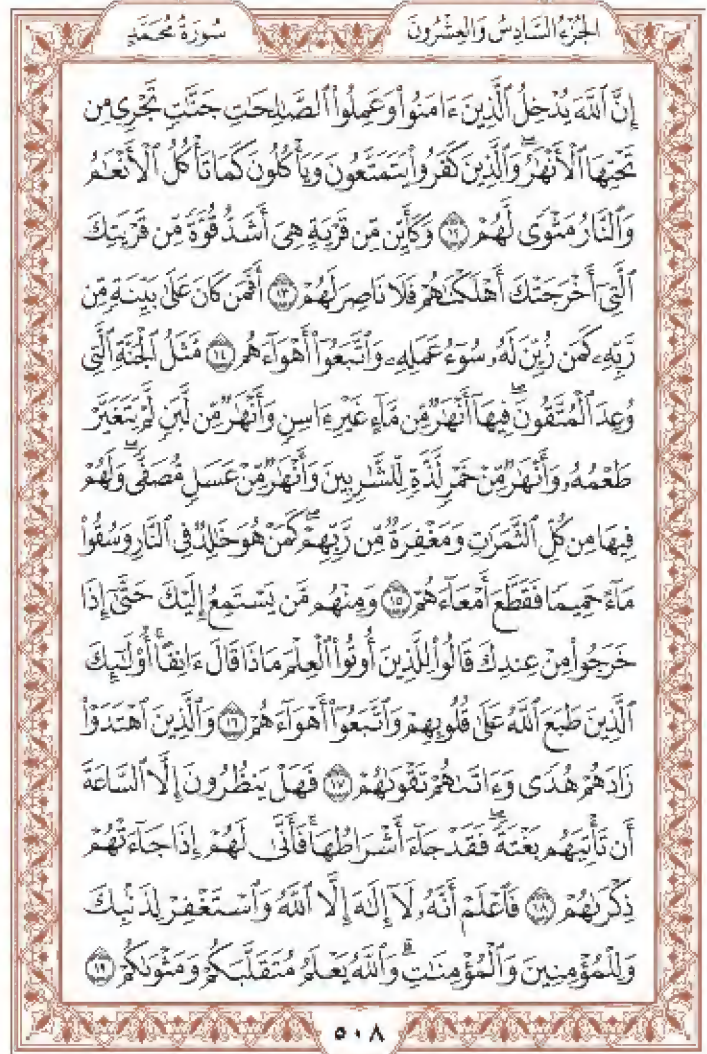 الجزء السادس والعشرون
سورة محمد
إِنَّ ٱللَّهَ يُدۡخِلُ ٱلَّذِينَ ءَامَنُواْ وَعَمِلُواْ ٱلصَّـٰلِحَـٰتِ جَنَّـٰتٖ تَجۡرِي مِن
تَحۡتِهَا ٱلۡأَنۡهَـٰرُۖ وَٱلَّذِينَ كَفَرُواْ يَتَمَتَّعُونَ وَيَأۡكُلُونَ كَمَا تَأۡكُلُ ٱلۡأَنۡعَـٰمُ
وَٱلنَّارُ مَثۡوٗى لَّهُمۡ ١٢ وَكَأَيِّن مِّن قَرۡيَةٍ هِيَ أَشَدُّ قُوَّةٗ مِّن قَرۡيَتِكَ
ٱلَّتِيٓ أَخۡرَجَتۡكَ أَهۡلَكۡنَـٰهُمۡ فَلَا نَاصِرَ لَهُمۡ ١٣ أَفَمَن كَانَ عَلَىٰ بَيِّنَةٖ مِّن
رَّبِّهِۦ كَمَن زُيِّنَ لَهُۥ سُوٓءُ عَمَلِهِۦ وَٱتَّبَعُوٓاْ أَهۡوَآءَهُم ١٤ مَّثَلُ ٱلۡجَنَّةِ ٱلَّتِي
وُعِدَ ٱلۡمُتَّقُونَۖ فِيهَآ أَنۡهَـٰرٞ مِّن مَّآءٍ غَيۡرِ ءَاسِنٖ وَأَنۡهَـٰرٞ مِّن لَّبَنٖ لَّمۡ يَتَغَيَّرۡ
طَعۡمُهُۥ وَأَنۡهَـٰرٞ مِّنۡ خَمۡرٖ لَّذَّةٖ لِّلشَّـٰرِبِينَ وَأَنۡهَـٰرٞ مِّنۡ عَسَلٖ مُّصَفّٗىۖ وَلَهُمۡ
فِيهَا مِن كُلِّ ٱلثَّمَرَٰتِ وَمَغۡفِرَةٞ مِّن رَّبِّهِمۡۖ كَمَنۡ هُوَ خَـٰلِدٞ فِي ٱلنَّارِ وَسُقُواْ
مَآءً حَمِيمٗا فَقَطَّعَ أَمۡعَآءَهُمۡ ١٥ وَمِنۡهُم مَّن يَسۡتَمِعُ إِلَيۡكَ حَتَّىٰٓ إِذَا
خَرَجُواْ مِنۡ عِندِكَ قَالُواْ لِلَّذِينَ أُوتُواْ ٱلۡعِلۡمَ مَاذَا قَالَ ءَانِفًاۚ أُوْلَـٰٓئِكَ
ٱلَّذِينَ طَبَعَ ٱللَّهُ عَلَىٰ قُلُوبِهِمۡ وَٱتَّبَعُوٓاْ أَهۡوَآءَهُمۡ ١٦ وَٱلَّذِينَ ٱهۡتَدَوۡاْ
زَادَهُمۡ هُدٗى وَءَاتَىٰهُمۡ تَقۡوَىٰهُمۡ ١٧ فَهَلۡ يَنظُرُونَ إِلَّا ٱلسَّاعَةَ
أَن تَأۡتِيَهُم بَغۡتَةٗۖ فَقَدۡ جَآءَ أَشۡرَاطُهَاۚ فَأَنَّىٰ لَهُمۡ إِذَا جَآءَتۡهُمۡ
ذِكۡرَىٰهُمۡ ١٨ فَٱعۡلَمۡ أَنَّهُۥ لَآ إِلَـٰهَ إِلَّا ٱللَّهُ وَٱسۡتَغۡفِرۡ لِذَنۢبِكَ
وَلِلۡمُؤۡمِنِينَ وَٱلۡمُؤۡمِنَـٰتِۗ وَٱللَّهُ يَعۡلَمُ مُتَقَلَّبَكُمۡ وَمَثۡوَىٰكُمۡ ١٩
٥٠٨